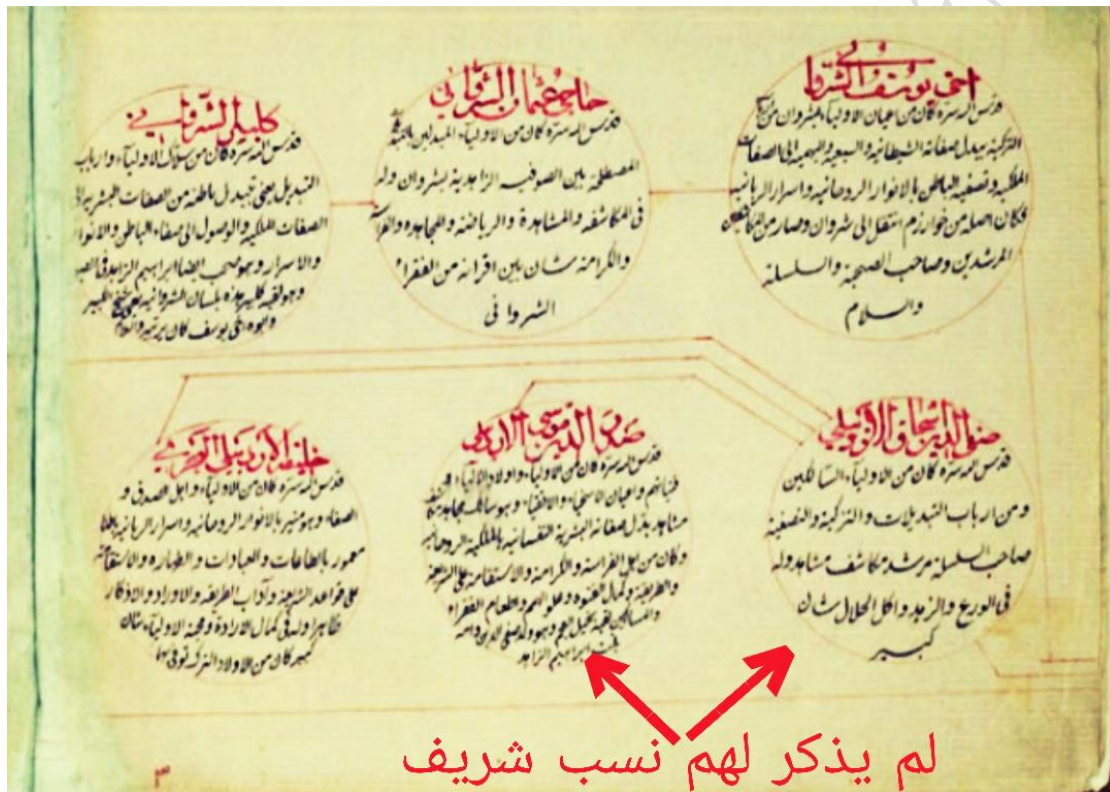 اخى يوسف الشروانى
قدس الله سره كان من اعيان الاولياء بشروان من
التزكية يبدل صفاته الشيطانيه والسبعيه والبهيميه الى الصفات
الملكيه وتصفية الباطن بالانوار الروحانيه واسرار الربانيه
فكان اصله من خوارزم انتقل الى شروان وصار من
المرشدين وصاحب الصحبة والسلسلة
والسلام
حاجى عثمان الشروانى
قدس الله سره كان من الاولياء المبدلين
المصطلحه بين الصوفيه الزاهدية بشروان وله
فى المكاشفه والمشاهدة والرياضة والمجاهده
والكرامة شان بين اقرانه من الفقراء
الشروانى
كلبيل الشروانى
قدس الله سره كان من الاولياء وارباب
التبديل يعنى تبديل باطنه من الصفات البشريه الى
الصفات الملكيه والوصول الى صفاء الباطن والانوار
والاسرار وهو صحب ايضا ابراهيم الزاهد
وهو لقبه بلسان الشروانيه يعنى الكبير
وابوه اخى يوسف كان
صفى الدين اسحاق الاردبيلى
قدس الله سره كان من الاولياء السالكين
ومن ارباب التبديلات والتزكية والتصفية
صاحب السلسلة مرشد مكاشف مشاهد وله
فى الورع والزهد واكل الحلال شان
كبير
صدر الدين موسى الاردبيلى
قدس الله سره كان من الاولياء واولاد الاولياء
واعيان الاسخياء والاتقياء وهو سالك مجاهد
مشاهد بدل صفاته البشرية النفسانيه بالملكية
وكان من اهل الفراسة والكرامة والاستقامة على الشريعة
والطريقة وكمال الفتوه وعلو الهمم واطعام الفقراء
والمساكين لقبه وهو ولد صفى الدين وامه
بنت ابراهيم الزاهد
خليفه الاردبيلى
قدس الله سره كان من الاولياء واهل الصدق و
الصفاء وهو منير بالانوار الروحانيه واسرار الربانيه
معمور بالطاعات والعبادات والطهارة والاستقامة
على قواعد الشريعة وآداب الطريقه والاوراد والاذكار
ظاهرا وله فى كمال الارادة ومحبة الاولياء شان
كبير كان من الاولاد الترك توفى بها
لم يذكر لهم نسب شريف
٣